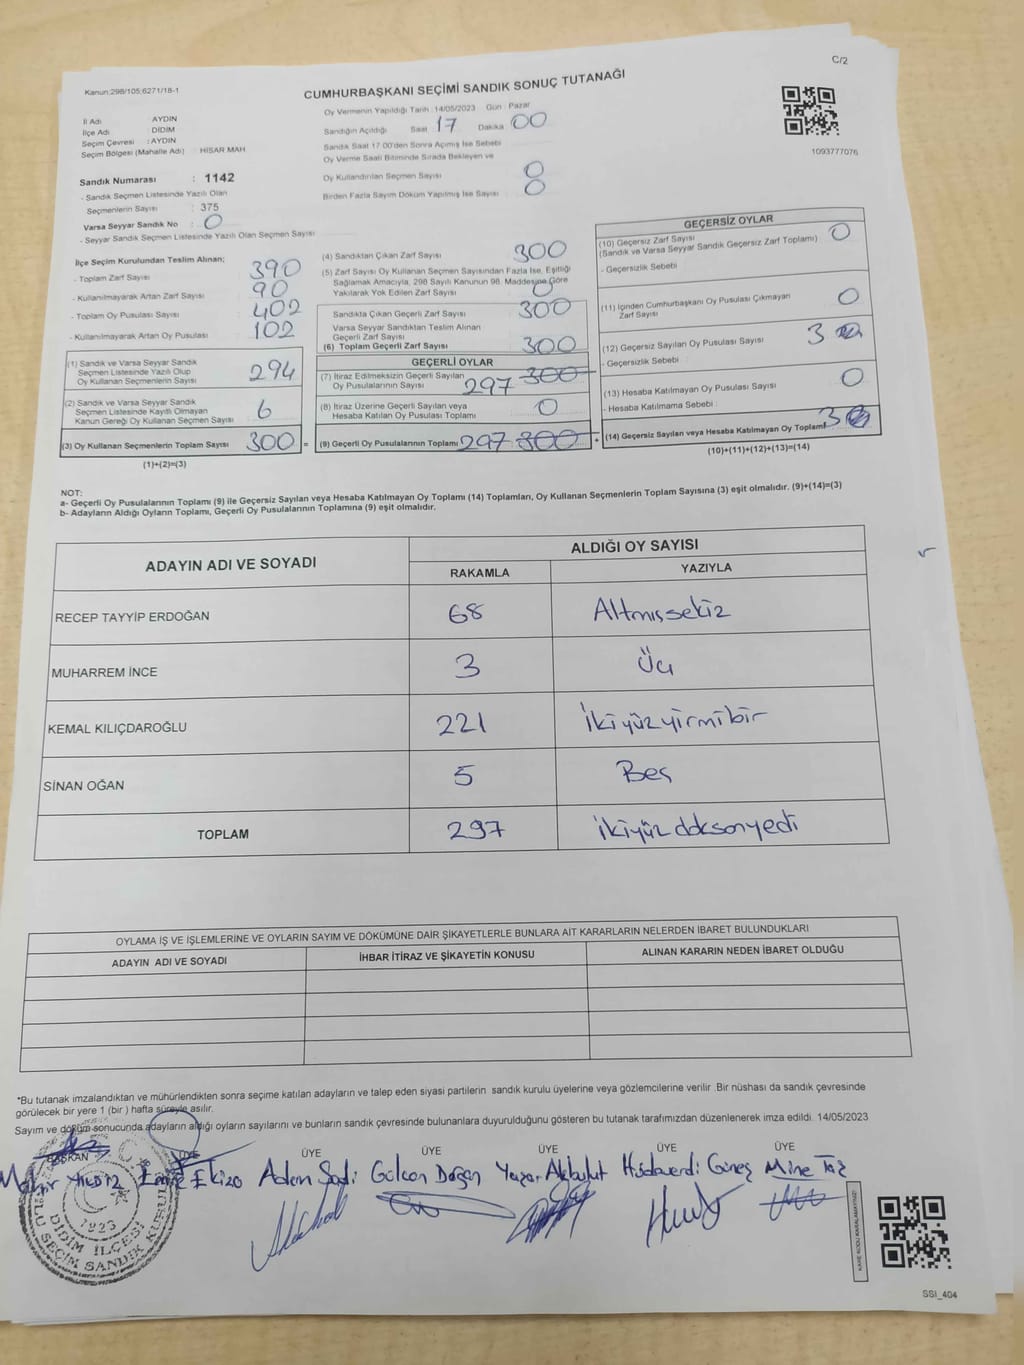 C/2
Kanun:298/105;6271/18-1
CUMHURBAŞKANI SEÇİMİ SANDIK SONUÇ TUTANAĞI
İl Adı : AYDIN
İlçe Adı : DİDİM
Seçim Çevresi : AYDIN
Seçim Bölgesi (Mahalle Adı) : HİSAR MAH.
Sandık Numarası : 1142
- Sandık Seçmen Listesinde Yazılı Olan
Seçmenlerin Sayısı : 375
Varsa Seyyar Sandık No : 0
- Seyyar Sandık Seçmen Listesinde Yazılı Olan Seçmen Sayısı :
Oy Vermenin Yapıldığı Tarih : 14/05/2023 Gün : Pazar
Sandığın Açıldığı Saat 17 Dakika 00
Sandık Saat 17.00'den Sonra Açılmış İse Sebebi
Oy Verme Saati Bitiminde Sırada Bekleyen ve
Oy Kullandırılan Seçmen Sayısı 0
Birden Fazla Sayım Döküm Yapılmış İse Sayısı 0
1093777076
İlçe Seçim Kurulundan Teslim Alınan;
- Toplam Zarf Sayısı 390
- Kullanılmayarak Artan Zarf Sayısı 90
- Toplam Oy Pusulası Sayısı 402
- Kullanılmayarak Artan Oy Pusulası 102
(1) Sandık ve Varsa Seyyar Sandık
Seçmen Listesinde Yazılı Olup
Oy Kullanan Seçmenlerin Sayısı 294
(2) Sandık ve Varsa Seyyar Sandık
Seçmen Listesinde Kayıtlı Olmayan
Kanun Gereği Oy Kullanan Seçmen Sayısı 6
(3) Oy Kullanan Seçmenlerin Toplam Sayısı 300 =
(1)+(2)=(3)
(4) Sandıktan Çıkan Zarf Sayısı 300
(5) Zarf Sayısı Oy Kullanan Seçmen Sayısından Fazla İse, Eşitliği
Sağlamak Amacıyla, 298 Sayılı Kanunun 98. Maddesine Göre
Yakılarak Yok Edilen Zarf Sayısı 0
Sandıkta Çıkan Geçerli Zarf Sayısı 300
Varsa Seyyar Sandıktan Teslim Alınan
Geçerli Zarf Sayısı
(6) Toplam Geçerli Zarf Sayısı 300
GEÇERLİ OYLAR
(7) İtiraz Edilmeksizin Geçerli Sayılan
Oy Pusulalarının Sayısı 297 300
(8) İtiraz Üzerine Geçerli Sayılan veya
Hesaba Katılan Oy Pusulası Toplamı 0
(9) Geçerli Oy Pusulalarının Toplamı 297 300 +
GEÇERSİZ OYLAR
(10) Geçersiz Zarf Sayısı 0
(Sandık ve Varsa Seyyar Sandık Geçersiz Zarf Toplamı)
- Geçersizlik Sebebi :
(11) İçinden Cumhurbaşkanı Oy Pusulası Çıkmayan
Zarf Sayısı 0
(12) Geçersiz Sayılan Oy Pusulası Sayısı 3
- Geçersizlik Sebebi :
(13) Hesaba Katılmayan Oy Pusulası Sayısı 0
- Hesaba Katılmama Sebebi :
(14) Geçersiz Sayılan veya Hesaba Katılmayan Oy Toplamı 3
(10)+(11)+(12)+(13)=(14)
NOT:
a- Geçerli Oy Pusulalarının Toplamı (9) ile Geçersiz Sayılan veya Hesaba Katılmayan Oy Toplamı (14) Toplamları, Oy Kullanan Seçmenlerin Toplam Sayısına (3) eşit olmalıdır. (9)+(14)=(3)
b- Adayların Aldığı Oyların Toplamı, Geçerli Oy Pusulalarının Toplamına (9) eşit olmalıdır.
ADAYIN ADI VE SOYADI ALDIĞI OY SAYISI
RAKAMLA YAZIYLA
RECEP TAYYİP ERDOĞAN 68 Altmışsekiz
MUHARREM İNCE 3 Üç
KEMAL KILIÇDAROĞLU 221 İkiyüzyirmibir
SİNAN OĞAN 5 Beş
TOPLAM 297 ikiyüz doksanyedi
OYLAMA İŞ VE İŞLEMLERİNE VE OYLARIN SAYIM VE DÖKÜMÜNE DAİR ŞİKAYETLERLE BUNLARA AİT KARARLARIN NELERDEN İBARET BULUNDUKLARI
ADAYIN ADI VE SOYADI İHBAR İTİRAZ VE ŞİKAYETİN KONUSU ALINAN KARARIN NEDEN İBARET OLDUĞU
*Bu tutanak imzalandıktan ve mühürlendikten sonra seçime katılan adayların ve talep eden siyasi partilerin sandık kurulu üyelerine veya gözlemcilerine verilir .Bir nüshası da sandık çevresinde
görülecek bir yere 1 (bir ) hafta süreyle asılır.
Sayım ve döküm sonucunda adayların aldığı oyların sayılarını ve bunların sandık çevresinde bulunanlara duyurulduğunu gösteren bu tutanak tarafımızdan düzenlenerek imza edildi. 14/05/2023
BAŞKAN ÜYE ÜYE ÜYE ÜYE ÜYE ÜYE
Gülcan Doğan Yaşar Akbulut Hüdaverdi Güneş Mine
1923
DİDİM İLÇESİ
SEÇİM SANDIK KURULU
KARE KODU KARALAMAYINIZ!
SSI_404